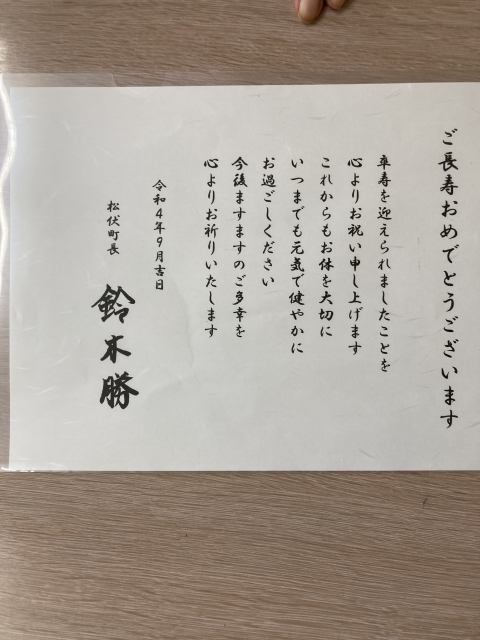 ご長寿おめでとうございます
卒寿を迎えられましたことを
心よりお祝い申し上げます
これからもお体を大切に
いつまでも元気で健やかに
お過ごしください
今後ますますのご多幸を
心よりお祈りいたします
令和4年9月吉日
松伏町長
鈴木勝